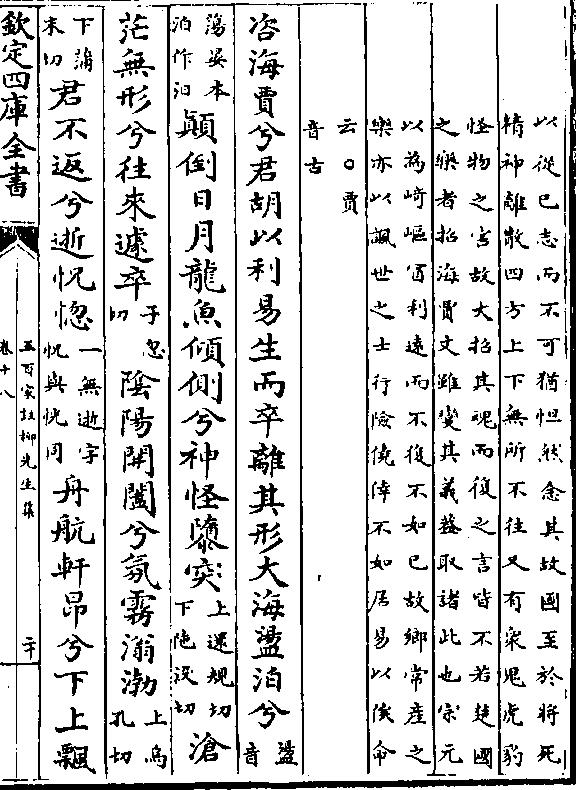 以從己志而不可猶怛然念其故國至於將死
精神離散四方上下無所不往又有衆鬼虎豹
怪物之害故大招其魂而復之言皆不若楚國
之樂者招海賈文雖變其義蓋取諸此也宗元
以為崎嶇冒利遠而不復不如已故鄉常產之
樂亦以諷世之士行險僥倖不如居易以俟命
云○賈
音古
咨海賈兮君胡以利易生而卒離其形大海盪泊兮
盪
音
蕩晏本
泊作汩
顛倒日月龍魚傾側兮神怪隳突
上還規切
下陁沒切
滄
茫無形兮往來遽卒
于忽
切
陰陽開闔兮氛霧滃渤
上烏
孔切
下蒲
末切
君不返兮逝怳惚
一無逝字
怳與恍同
舟航軒昂兮下上飄
欽定四庫全書
五百家註柳先生集
卷十八
二十